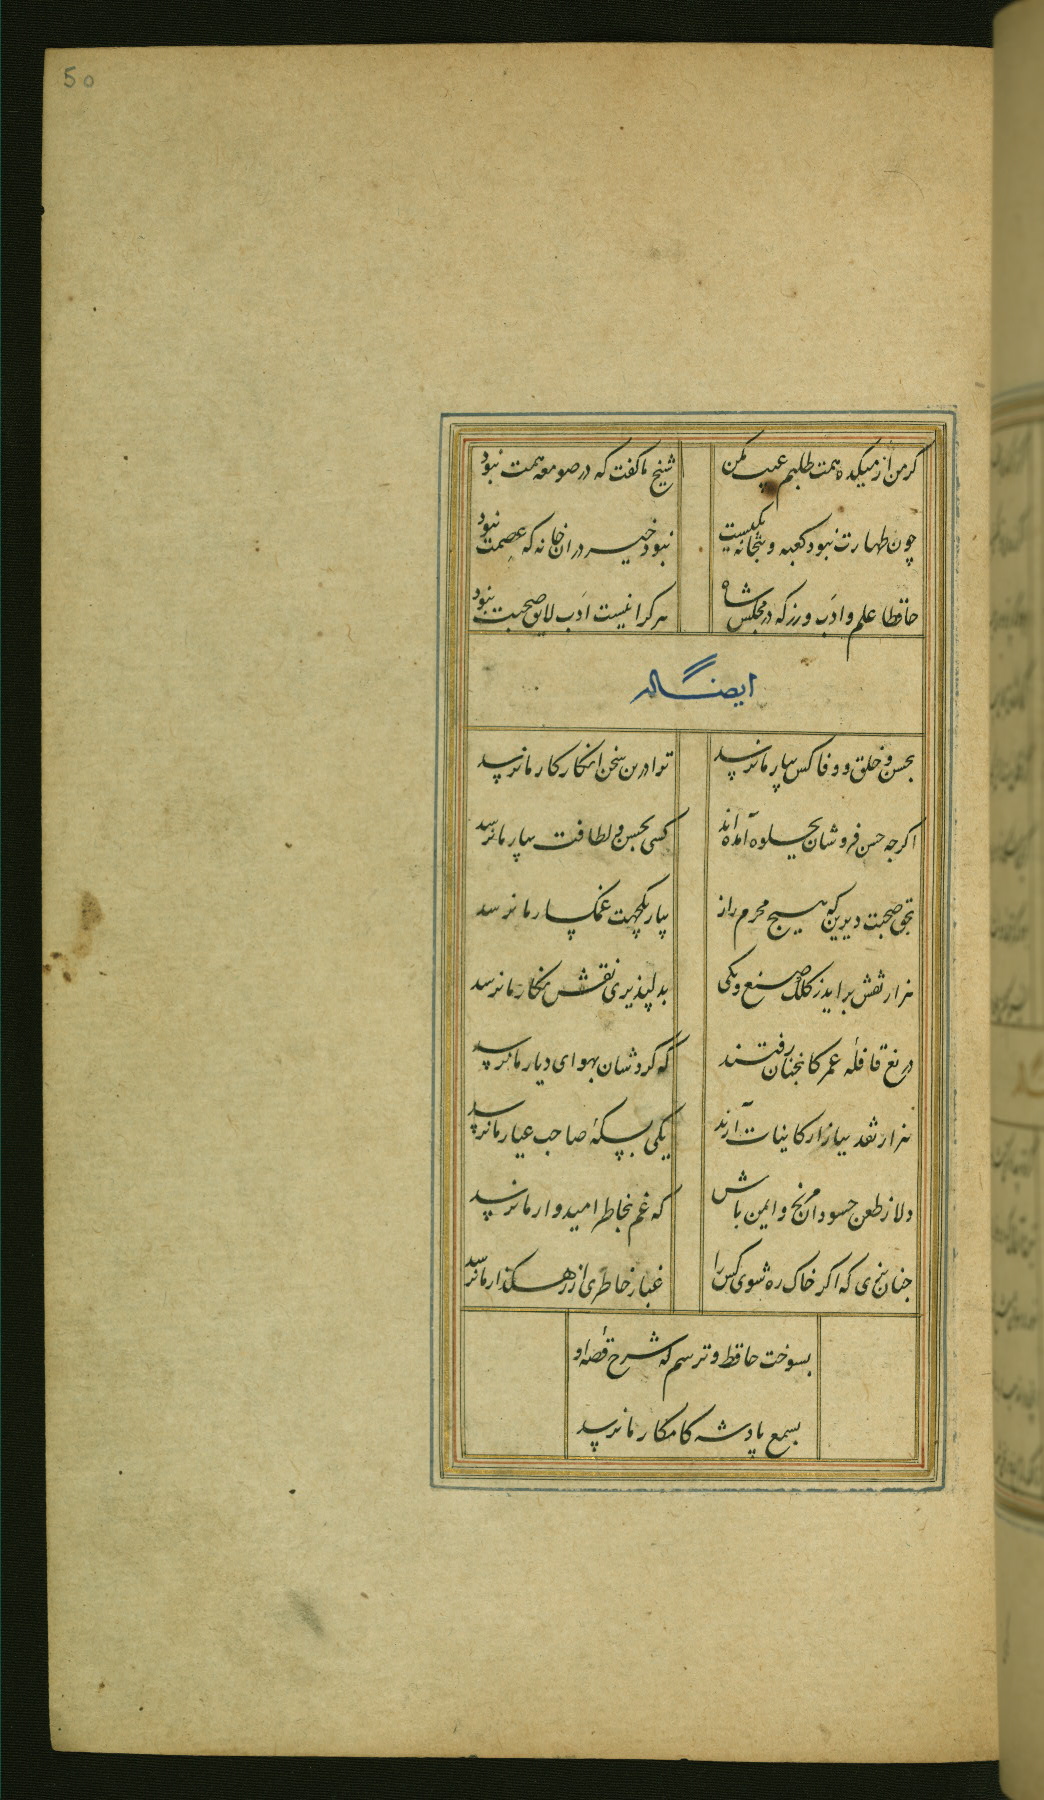 50
کر من از میکده همت طلبم عیب مکن
شیخ ما کفت که در صومعه همت نبود
چون طهارت نبود کعبه و بتخانه یکیست
نبود خیر در ان خانه که عصمت نبود
حافظا علم و ادب ورز که در مجلس شاه
هر کرا نیست ادب لایق صحبت نبود
ایضاله
بحسن و خلق و وفا کس بیار ما نرسد
ترا درین سخن انکار کار ما نرسد
اکرچه حسن فروشان بجلوه آمده اند
کسی بحسن و لطافت بیار ما نرسد
بحق صحبت دیرین که هیچ محرم راز
بیار یکجهت غمکسار ما نرسد
هزار نقش برآید ز کلک صنع و یکی
بدلپذیری نقش نکار ما نرسد
دریغ قافله عمر کانچنان رفتند
که کردشان بهوای دیار ما نرسد
هزار نقد ببازار کاینات آرند
یکی بسکهٔ صاحب عیار ما نرسد
دلا ز طعن حسودان مرنج و ایمن باش
که غم بخاطر امیدوار ما نرسد
چنان بزی که اکر خاک ره شوی کس را
غبار خاطری از رهکذار ما نرسد
بسوخت حافظ و ترسم که شرح قصهٔ او
بسمع پادشه کامکار ما نرسد